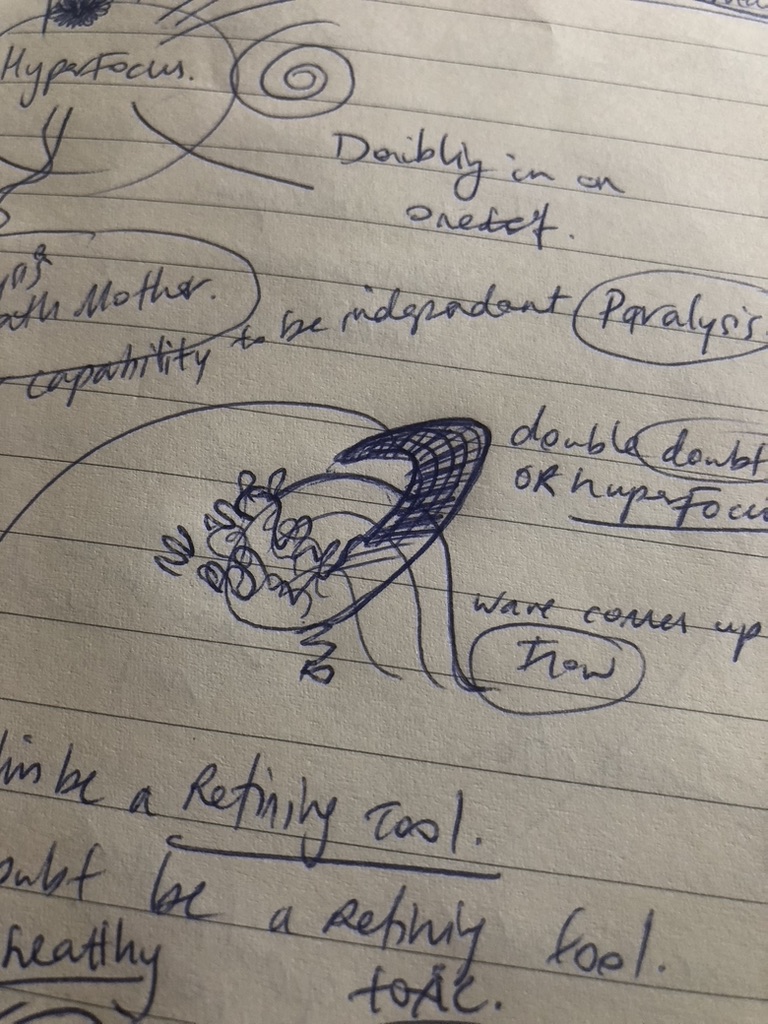 HyperFocus.
Doubling in on
oneself.
Mother.
capability to be independant Paralysis
double doubt
OR hyperfocu
wave comes up
Flow
be a Refining Tool.
oubt be a Refining tool.
healthy